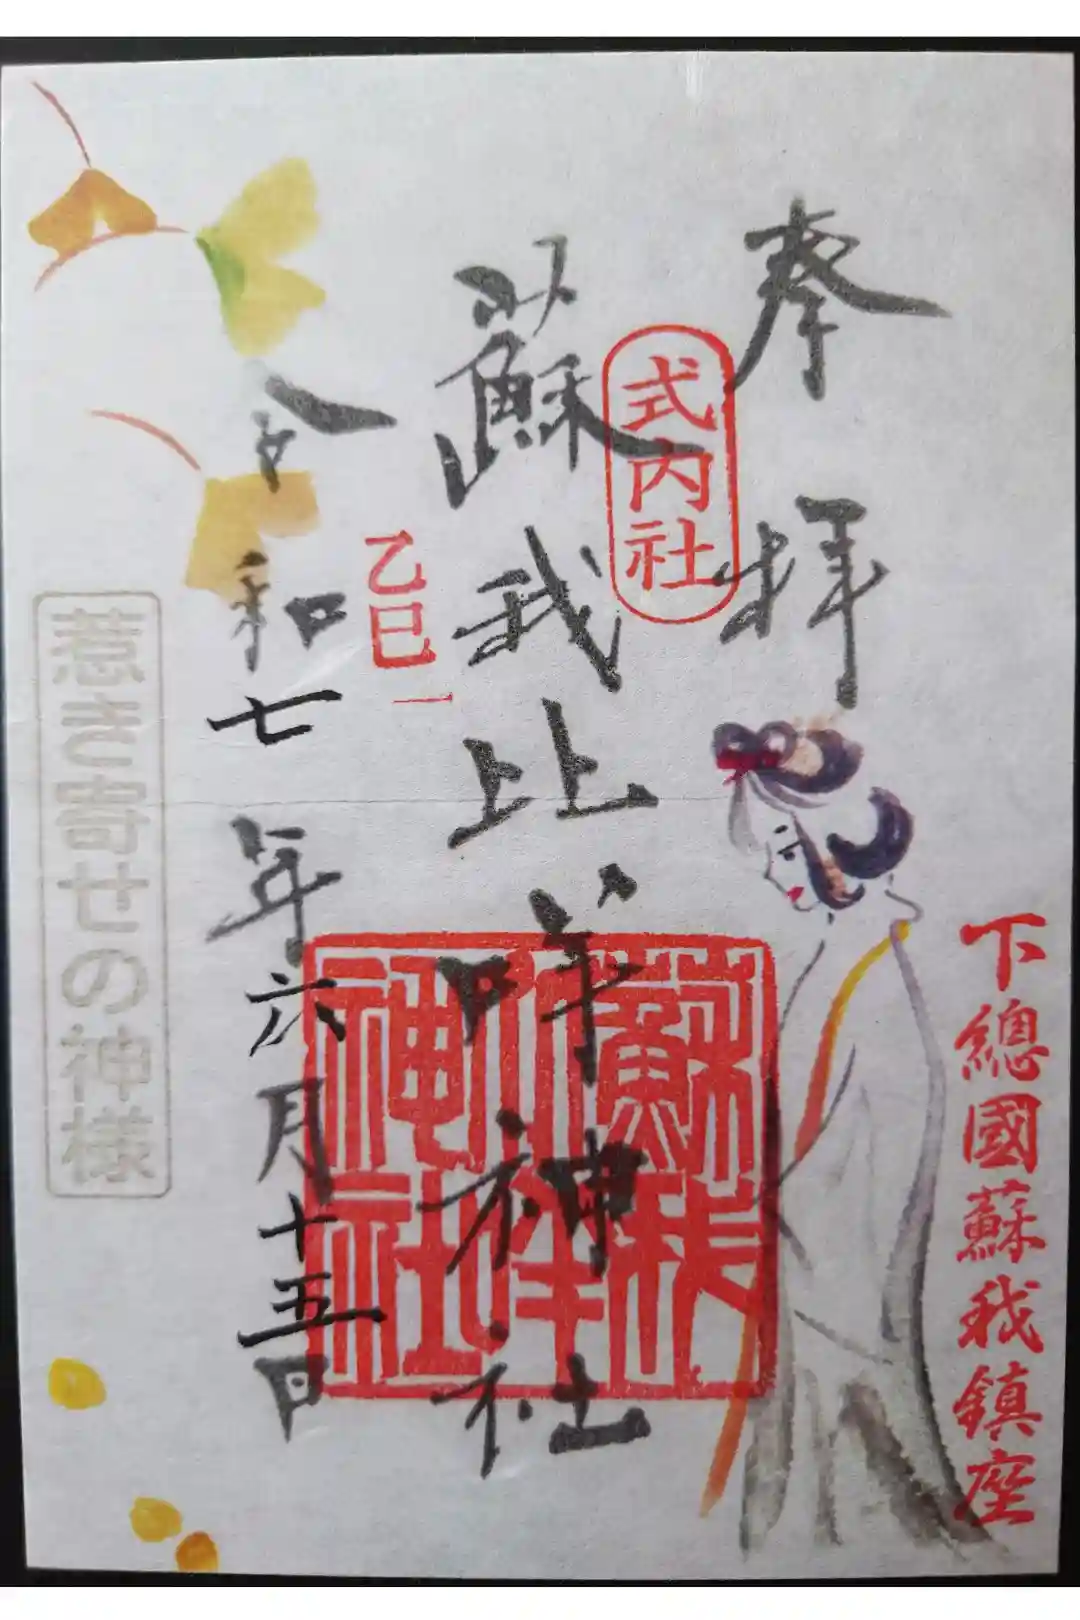 奉拝
下總國蘇我鎮座
式内社
蘇我比咩神社
蘇我比咩神社
乙巳一
令和七年六月十五日
惹き寄せの神様